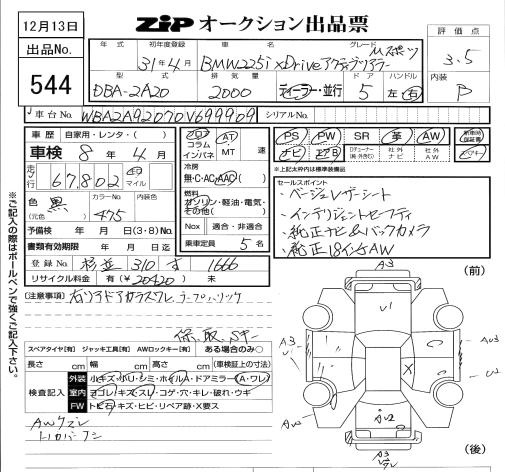 12月13日
ZIP オークション出品票
出品No.
544
年式 初年度登録 車名 グレード
31年4月 BMW225i xDriveアクティブツアラー Mスポーツ
型式 排気量 ドア ハンドル
DBA-2A20 2000 ディーラー・並行 5 左・右
評価点
3.5
内装
B
車台No. WBA2A92070V699909 シリアルNo.
車歴 自家用・レンタ・( )
車検 8年4月
走行 67,802 キロ マイル
色 黒 (元色) カラーNo. 475 内装色
予備検 年 月 日(3・8)Mo.
書類有効期限 年 月 日迄
登録No. 杉並 310 す 1666
リサイクル料金 有(¥20420) 未
フロア コラム インパネ AT・MT 速
冷房
無・C・AC・AAC
燃料
ガソリン・軽油・電気・その他( )
Nox 適合・非適合
乗車定員 5名
PS PW SR 革 AW 新車時保証書
ナビ エアB Dチューナー(純・外含む) 社外ナビ 社外AW
※上記太枠内は標準装備品
セールスポイント
・ベージュレザーシート
・インテリジェントセーフティ
・純正ナビ&バックカメラ
・純正18インチAW
[注意事項] 右リアドアガラスワレ
保、取、Sキー
スペアタイヤ[有] ジャッキ工具[有] AWロックキー[有] ある場合のみ○
長さ cm 幅 cm 高さ cm (車検証上の寸法)
検査記入
外装 小キズ・小凹・シミ・ホイルA・ドアミラー(A・ワレ)
室内 ヨゴレ・キズ・スレ・コゲ・穴・キレ・破れ・ウキ
FW トビ石・キズ・ヒビ・リペア跡・X要ス
AWケズレ
※ご記入の際はボールペンで強くご記入下さい。
(前)
A3
U1
A3
U1
A3
U2
X
AW
A2
AU2
A3
ワレ
(後)